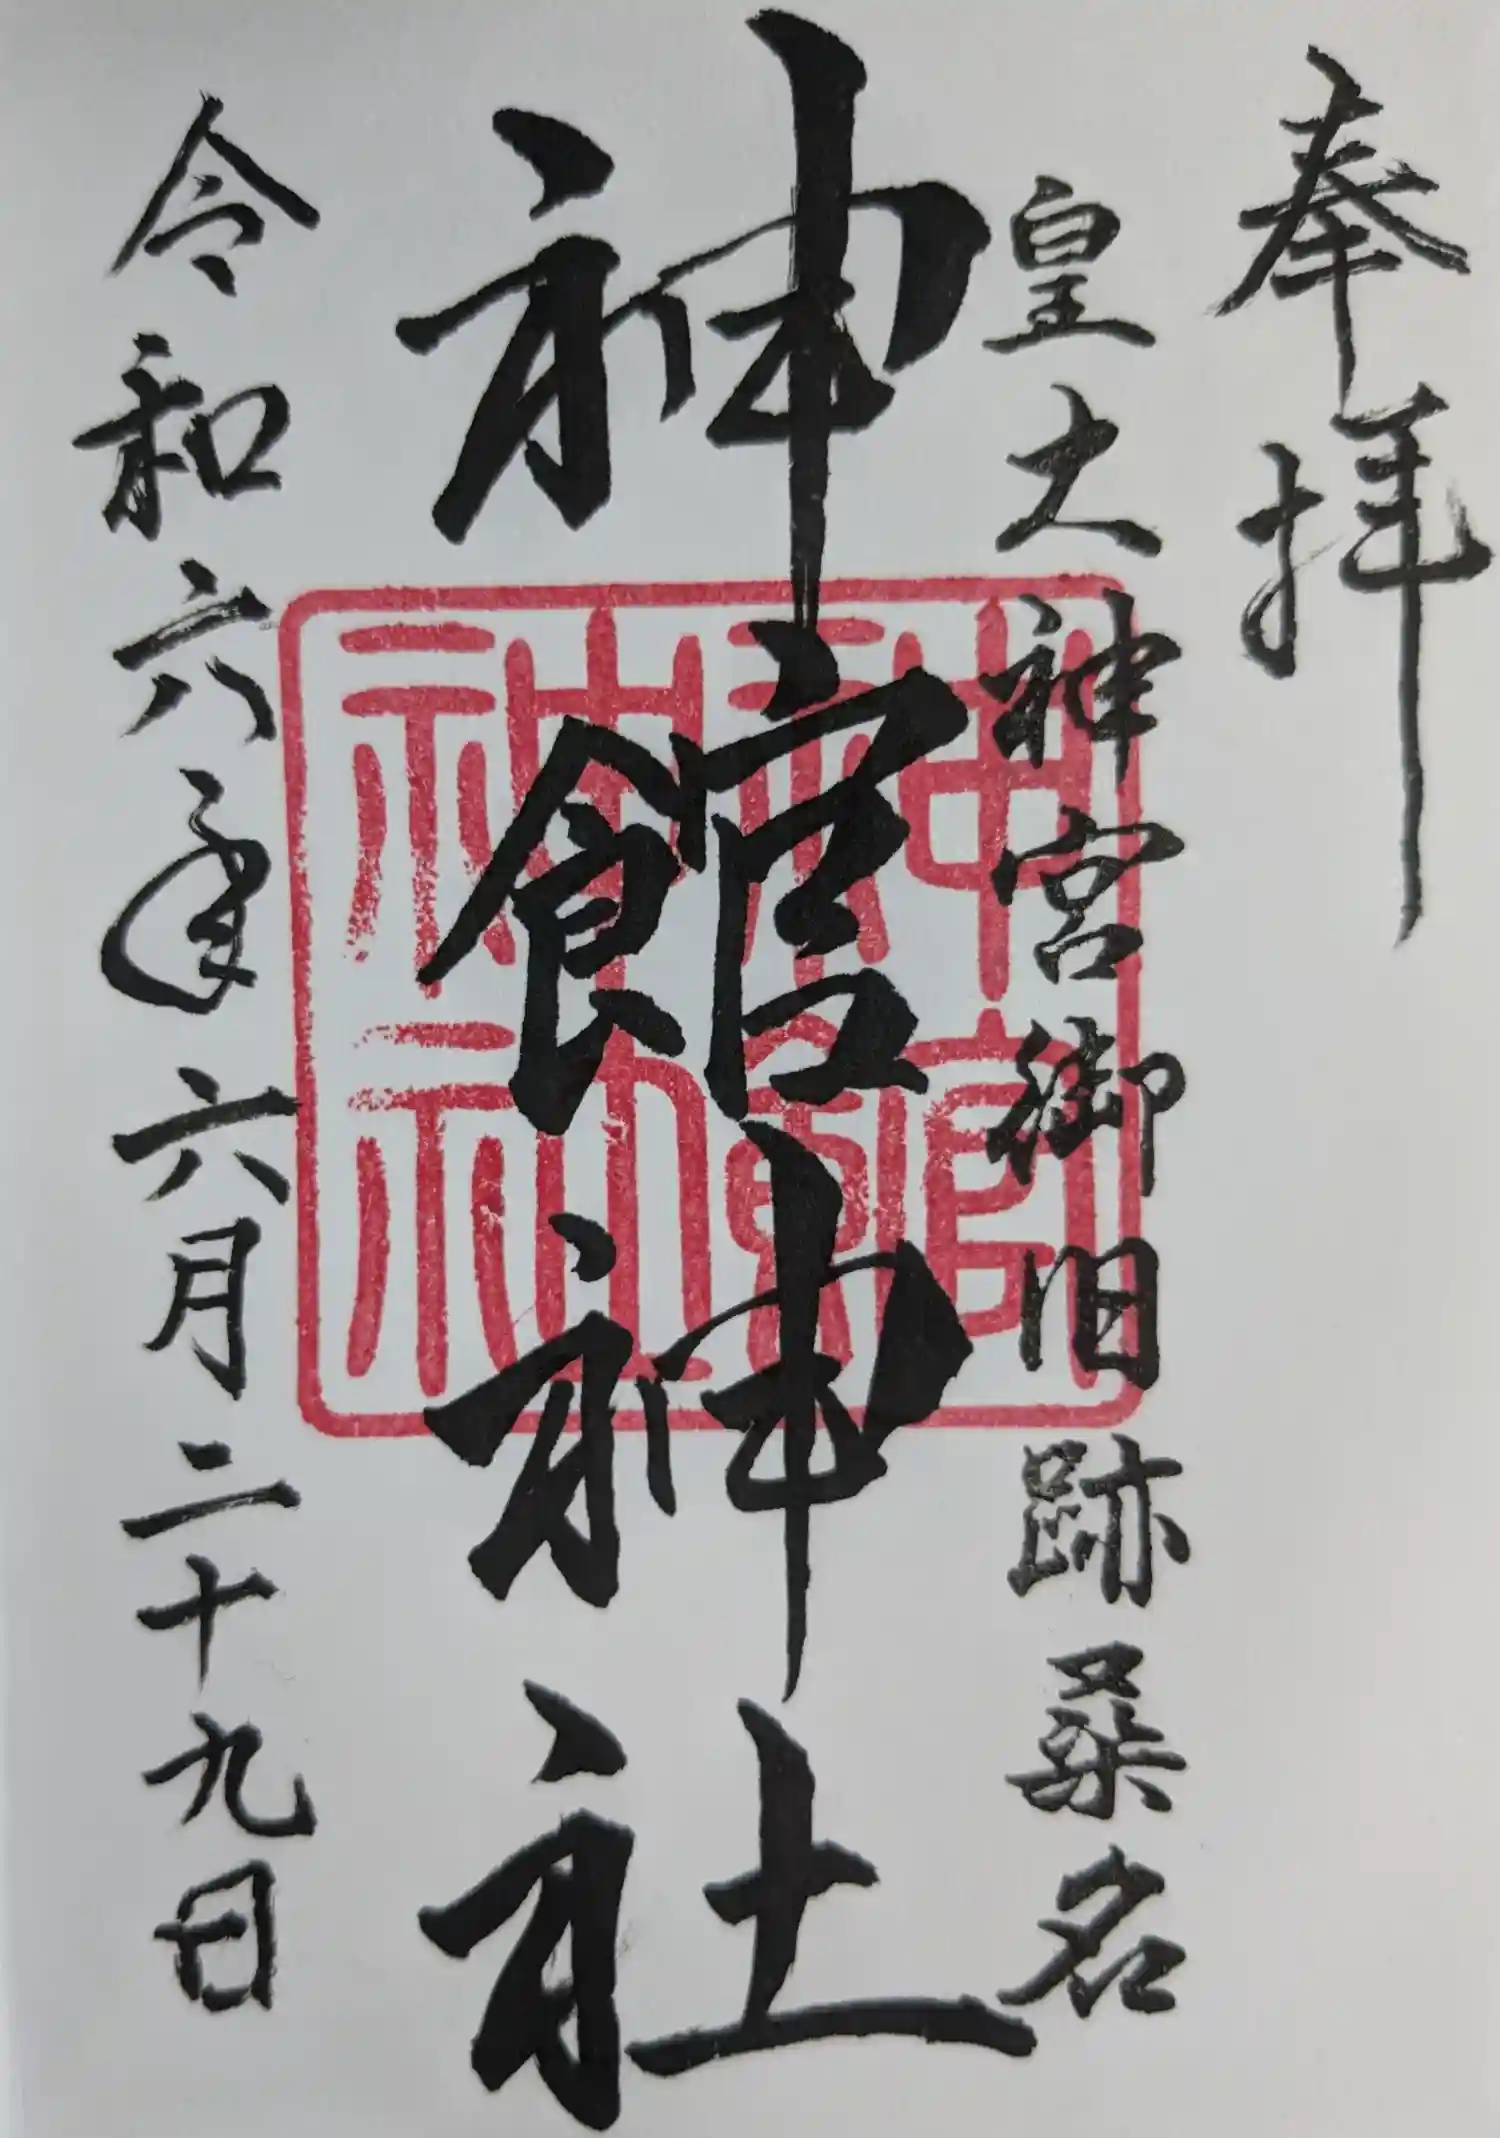 奉拝
皇大神宮御旧跡桑名
神館神社
神館神社
令和六年六月二十九日